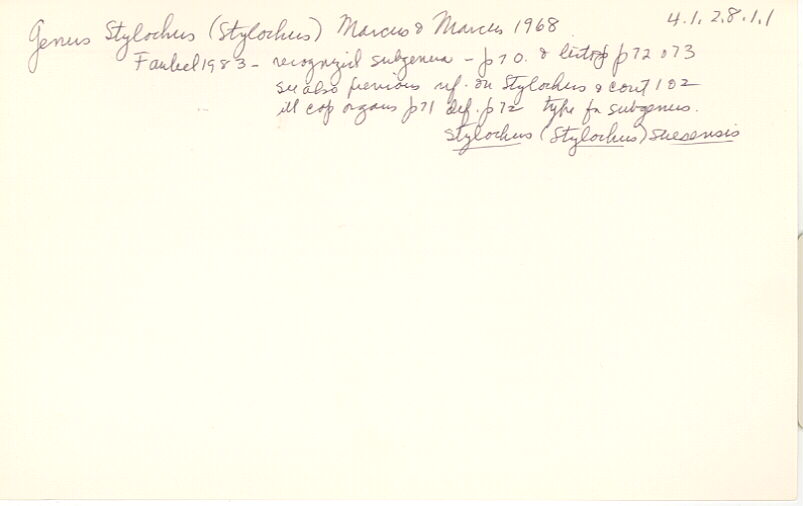 Genus Stylochus (Stylochus) Marcus & Marcus 1968 4.1.2.8.1.1
Faubel 1983 - recognized subgenera - p 70. & list of p 72 & 73
see also previous ref. on Stylochus & 102
ill cop organs p 71 def. p 72 type for subgenus.
Stylochus (Stylochus) suesensis